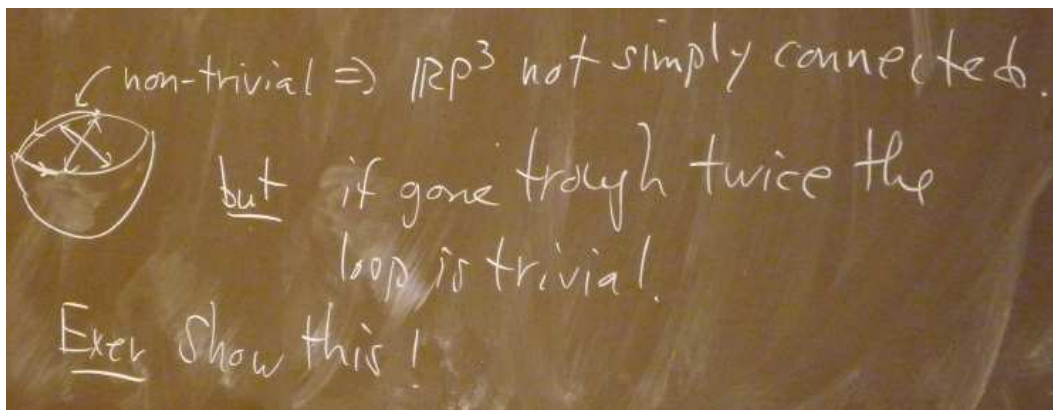 non-trivial ⇒ ℝP³ not simply connected.
but if gone trough twice the
loop is trivial!
Exer Show this!